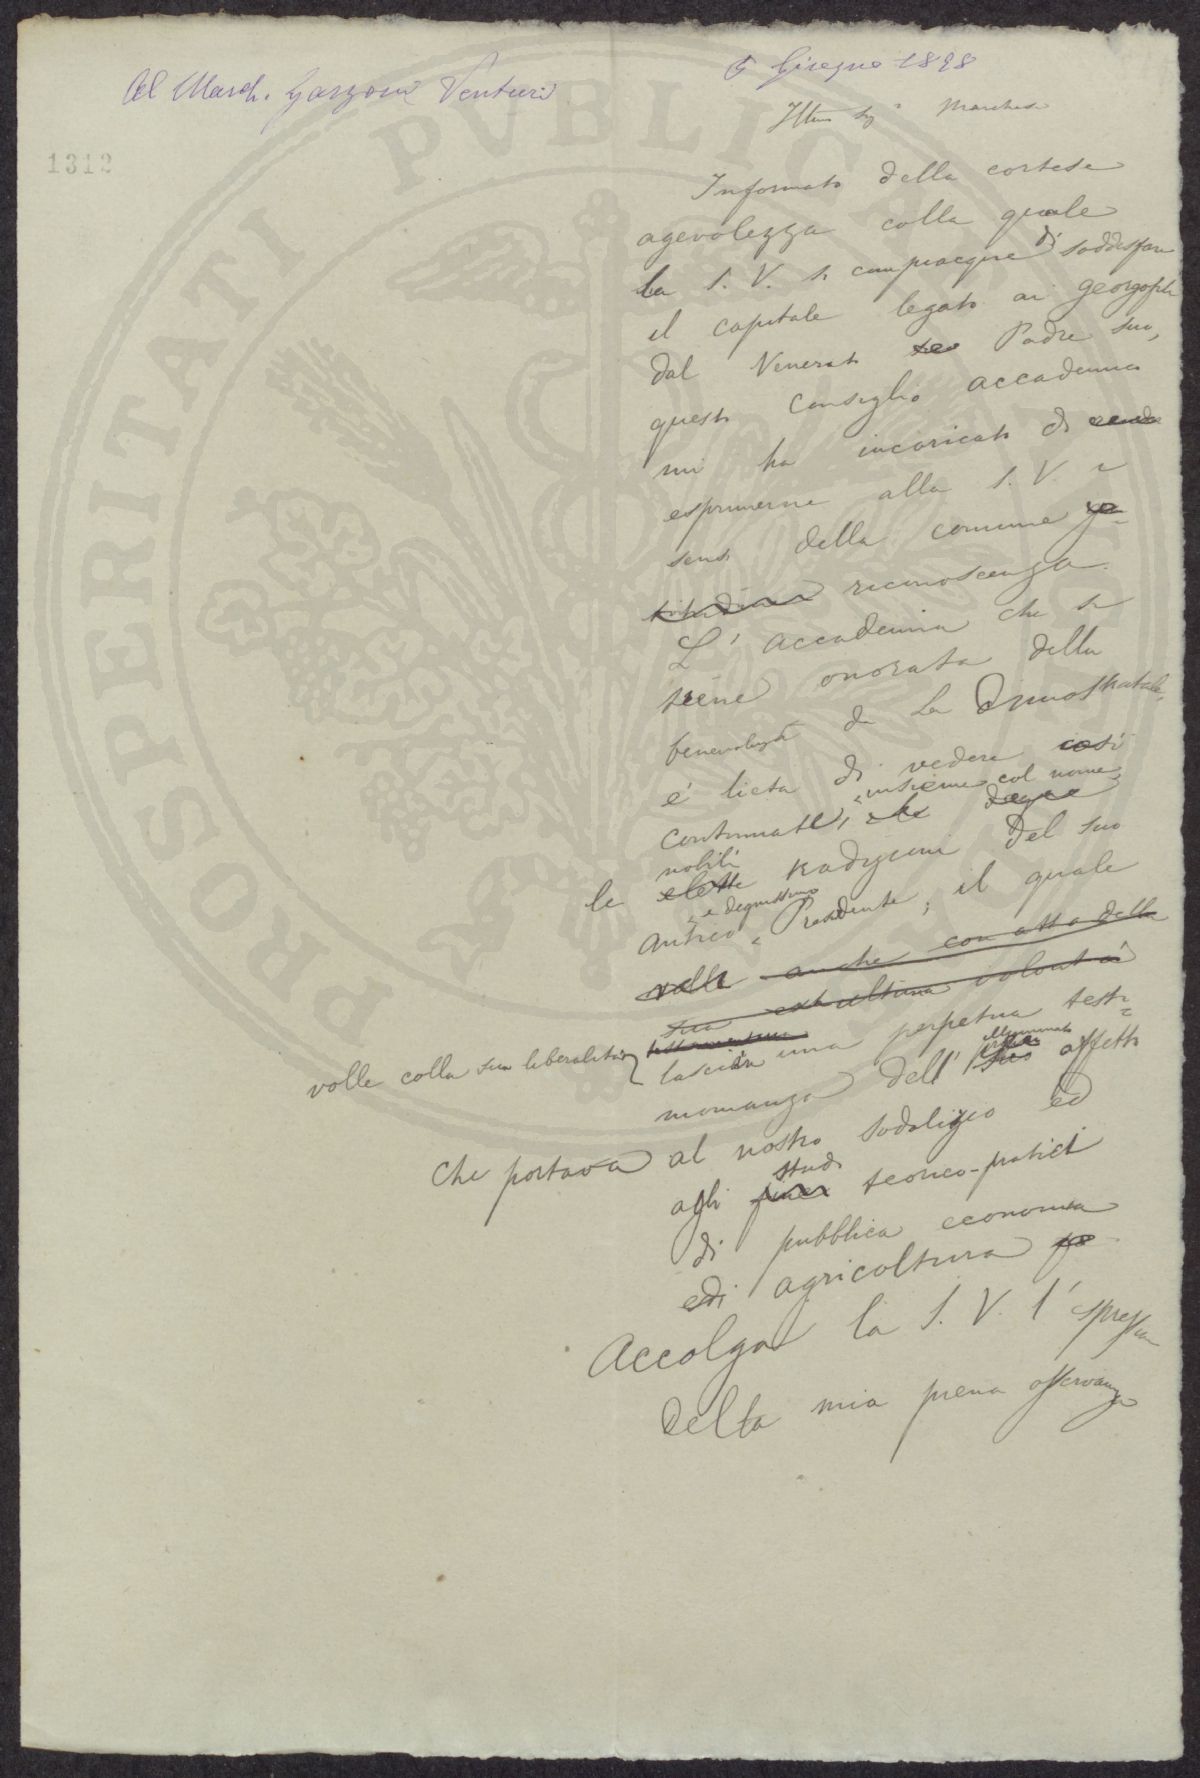 Al March. Garzoni Venturi
6 Giugno 1898
1312
Illmo Sig.e Marchese
Informato della cortese
agevolezza colla quale
la S. V. si compiacque di soddisfare
il capitale legato ai georgofili
dal Venerato Padre suo,
questo Consiglio accademico
mi ha incaricato di
esprimerne alla S. V. i
sensi della comune gra-
titudine riconoscenza.
L'Accademia che si
tiene onorata della
benevolenza di La
è lieta di vedere così
continuate, insieme col nome,
le nobili elette tradizioni del suo
antico e degnissimo Presidente; il quale
volle anche con atto della
sua ultima volontà
volle colla sua liberalità
lasciar una perpetua testi-
monianza dell'illuminato suo affetto
che portava al nostro sodalizio ed
agli studi teorico-pratici
di pubblica economia
e di agricoltura
Accolga la S. V. l'espressione
della mia piena osservanza
PROSPERITATI PVBLICAE